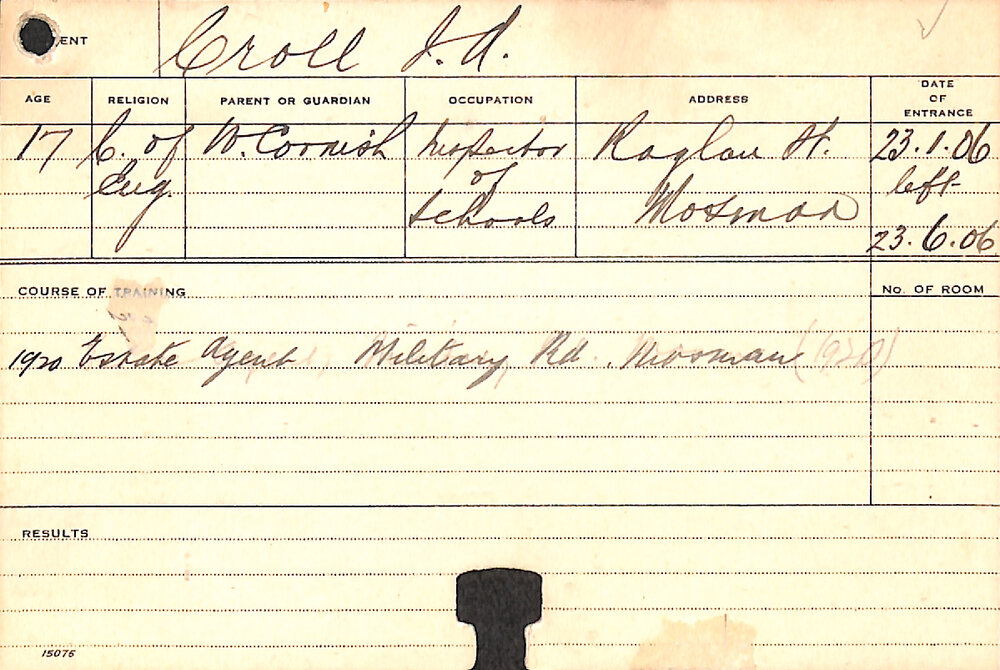 ENT Croll J. A.
AGE RELIGION PARENT OR GUARDIAN OCCUPATION ADDRESS DATE OF ENTRANCE
17 C. of W. Cornish Inspector Raglan St. 23.1.06
Eng. of Mosman left
schools 23.6.06
COURSE OF TRAINING No. OF ROOM
1920 Estate Agent, Military Rd. Mosman (1920)
RESULTS
15076